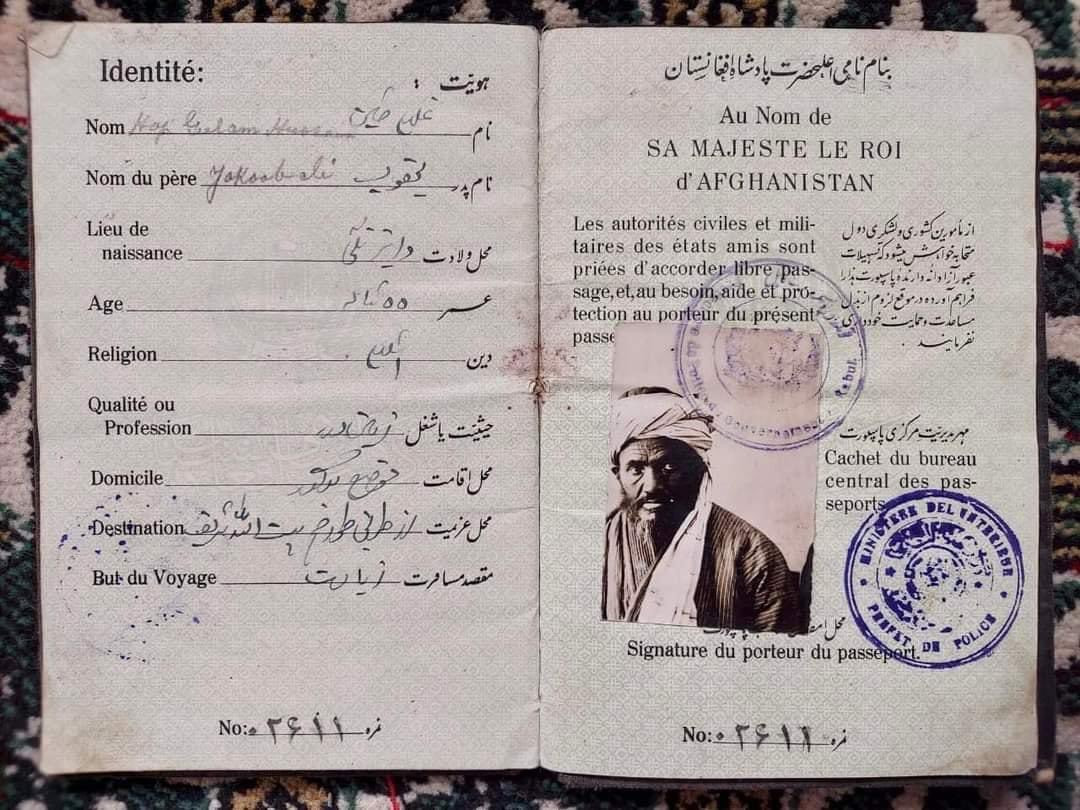 Identité: هویّت :
Nom Haji Gulam Hussain غلام حسین نام
Nom du père Yakoob ali یعقوب نام پدر
Lieu de
naissance محل ولادت
Age ۵۵ ساله عمر
Religion اسلام دین
Qualité ou
Profession حیثیّت یا شغل
Domicile محل اقامت
Destination از طریق طورخم بیت الله شریف محل عزیمت
But du Voyage زیارت مقصد مسافرت
No: ۰۲۶۱۱ نمره
بنام نامی اعلیحضرت پادشاه افغانستان
Au Nom de
SA MAJESTE LE ROI
d'AFGHANISTAN
Les autorités civiles et mili-
taires des états amis sont
priées d'accorder libre pas-
sage, et, au besoin, aide et pro-
tection au porteur du présent
passe
از مامورین کشوری و لشکری دول
متحابه خواهش میشود که تسهیلات
عبور آزادانه دارنده پاسپورت را
فراهم آورده در موقع لزوم از بذل
مساعدت و حمایت خودداری
نفرمایند .
Gouvernement
Kabul.
مهر مدیریت مرکزی پاسپورت
Cachet du bureau
central des pas-
seports
MINISTERE DEL'INTERIEUR
PREFAT DE POLICE
محل امضا پاسپورت
Signature du porteur du passeport.
No: ۰۲۶۱۱ نمره